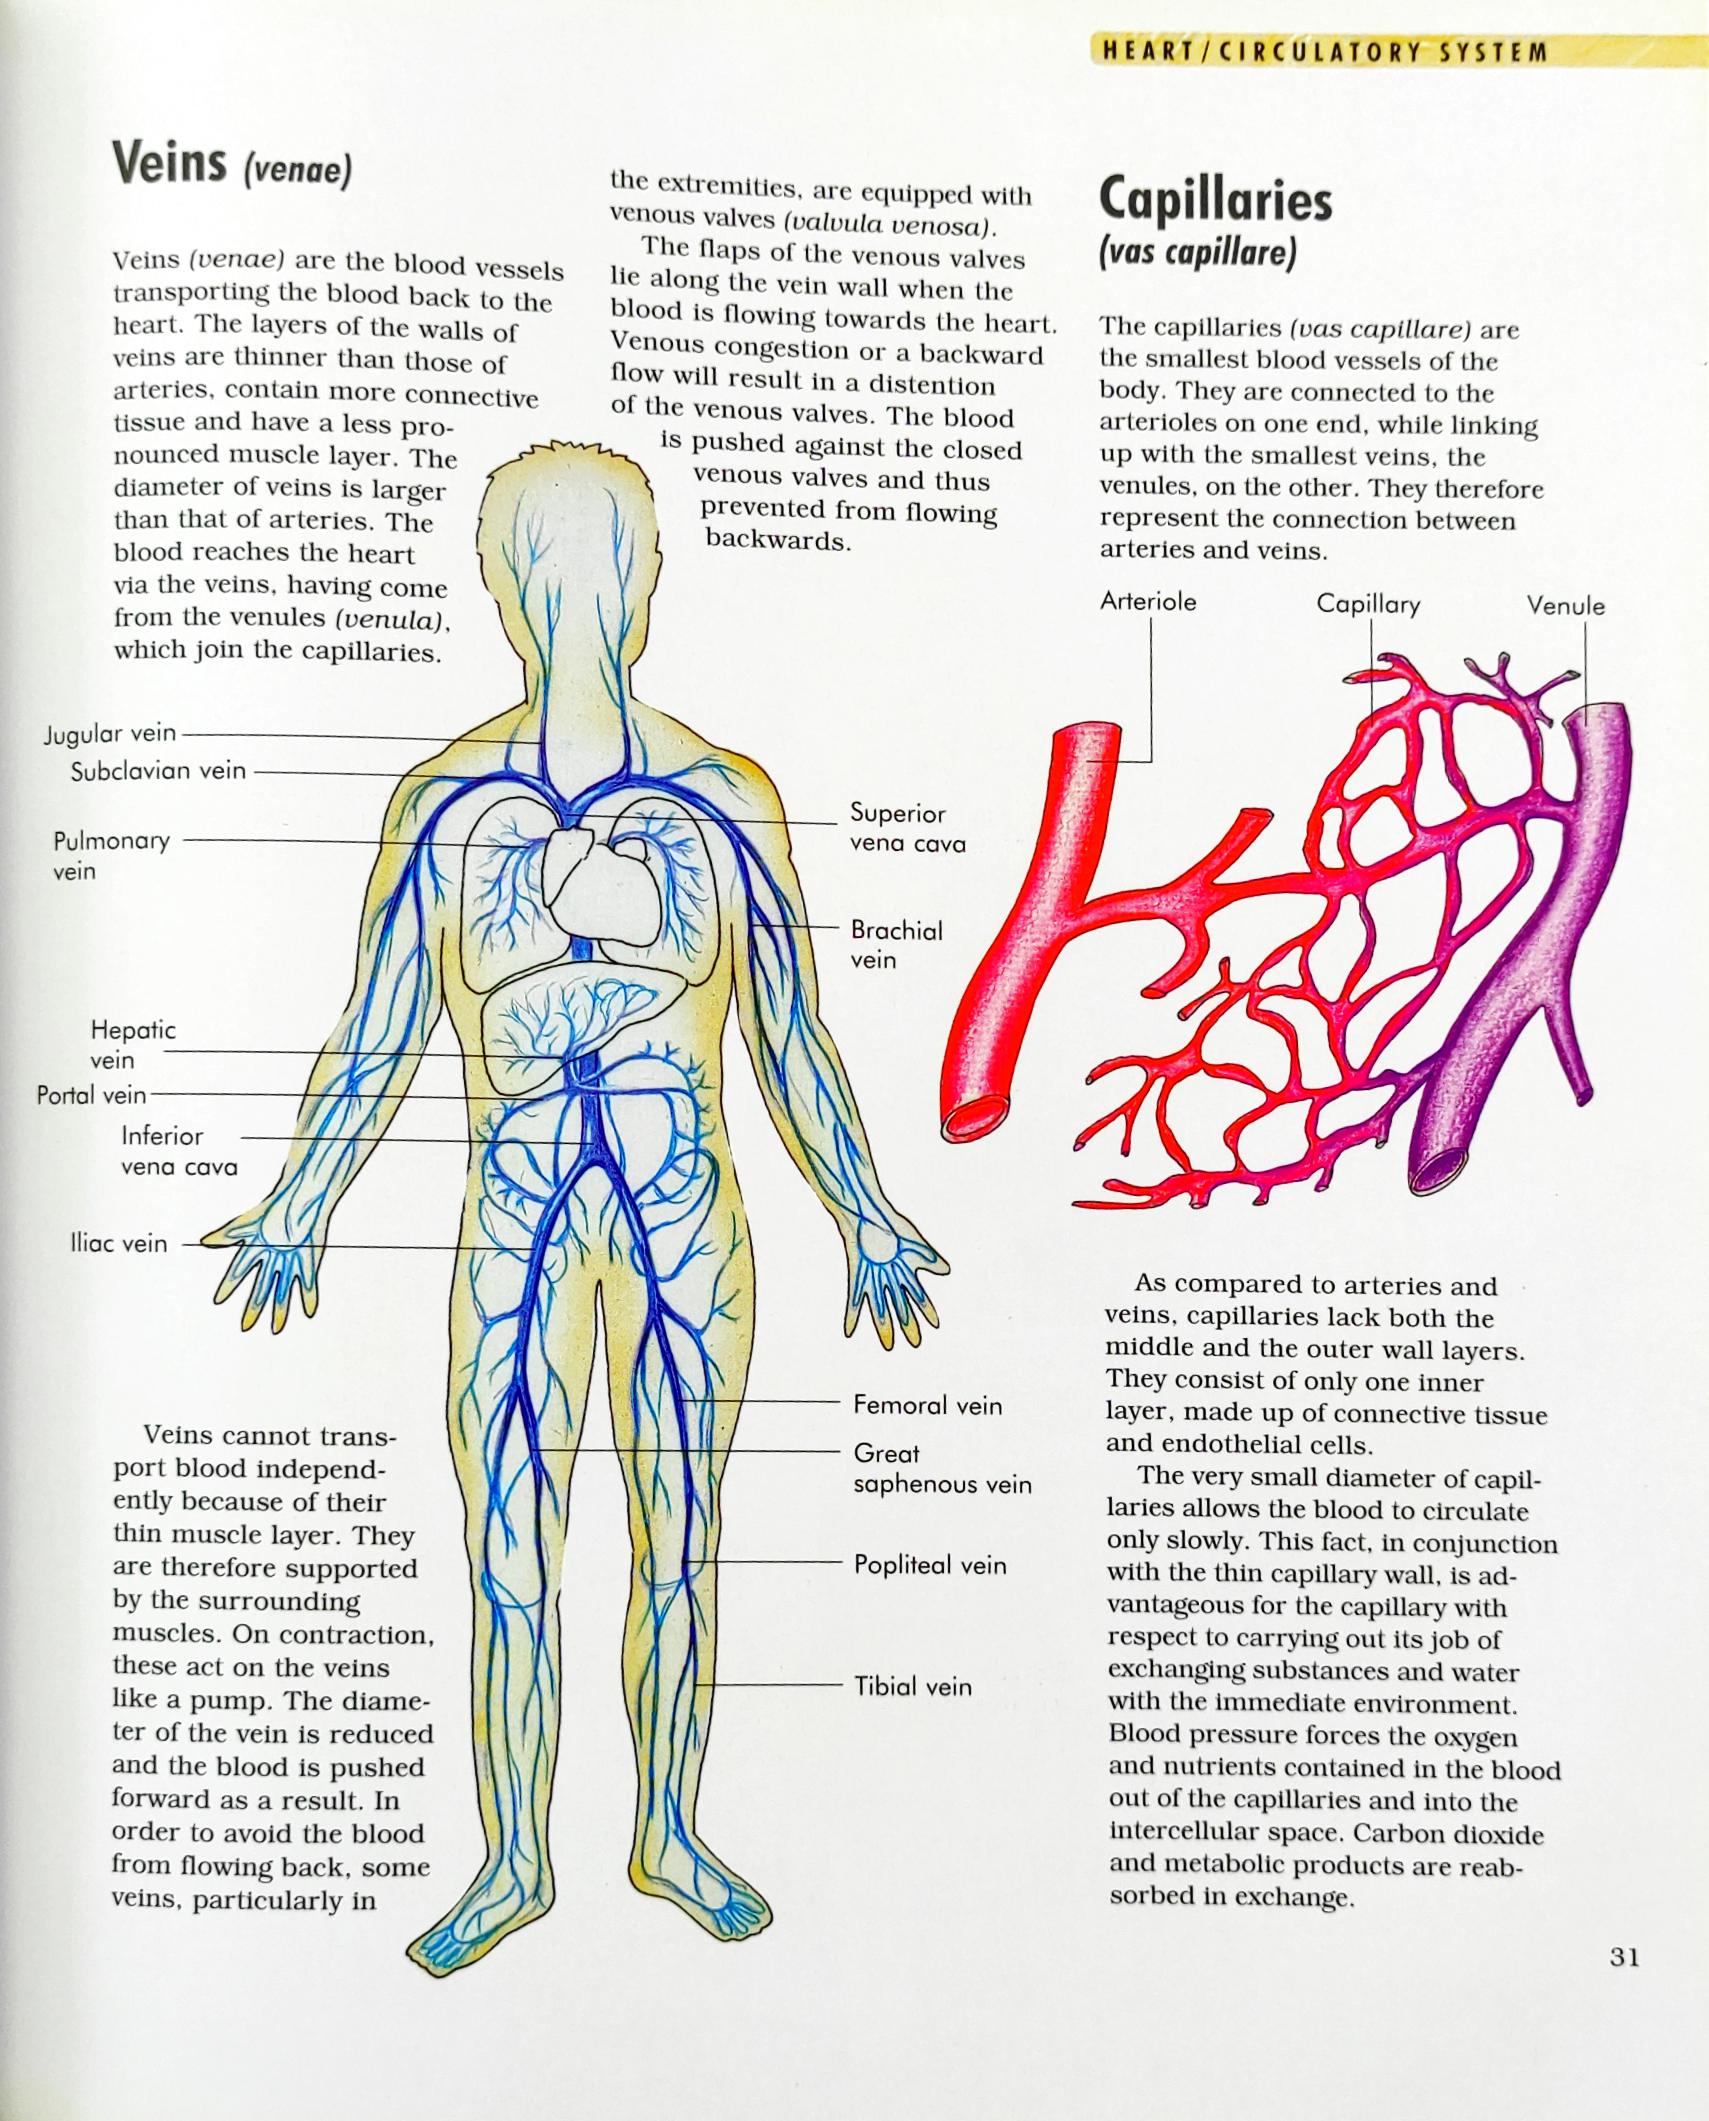 HEART/CIRCULATORY SYSTEM
Veins (venae)
Veins (venae) are the blood vessels
transporting the blood back to the
heart. The layers of the walls of
veins are thinner than those of
arteries, contain more connective
tissue and have a less pro-
nounced muscle layer. The
diameter of veins is larger
than that of arteries. The
blood reaches the heart
via the veins, having come
from the venules (venula),
which join the capillaries.
Jugular vein
Subclavian vein
Pulmonary
vein
Hepatic
vein
Portal vein
Inferior
vena cava
Iliac vein
Superior
vena cava
Brachial
vein
Femoral vein
Great
saphenous vein
Popliteal vein
Tibial vein
Veins cannot trans-
port blood independ-
ently because of their
thin muscle layer. They
are therefore supported
by the surrounding
muscles. On contraction,
these act on the veins
like a pump. The diame-
ter of the vein is reduced
and the blood is pushed
forward as a result. In
order to avoid the blood
from flowing back, some
veins, particularly in
the extremities, are equipped with
venous valves (valvula venosa).
The flaps of the venous valves
lie along the vein wall when the
blood is flowing towards the heart.
Venous congestion or a backward
flow will result in a distention
of the venous valves. The blood
is pushed against the closed
venous valves and thus
prevented from flowing
backwards.
Capillaries
(vas capillare)
The capillaries (vas capillare) are
the smallest blood vessels of the
body. They are connected to the
arterioles on one end, while linking
up with the smallest veins, the
venules, on the other. They therefore
represent the connection between
arteries and veins.
Arteriole
Capillary
Venule
As compared to arteries and
veins, capillaries lack both the
middle and the outer wall layers.
They consist of only one inner
layer, made up of connective tissue
and endothelial cells.
The very small diameter of capil-
laries allows the blood to circulate
only slowly. This fact, in conjunction
with the thin capillary wall, is ad-
vantageous for the capillary with
respect to carrying out its job of
exchanging substances and water
with the immediate environment.
Blood pressure forces the oxygen
and nutrients contained in the blood
out of the capillaries and into the
intercellular space. Carbon dioxide
and metabolic products are reab-
sorbed in exchange.
31